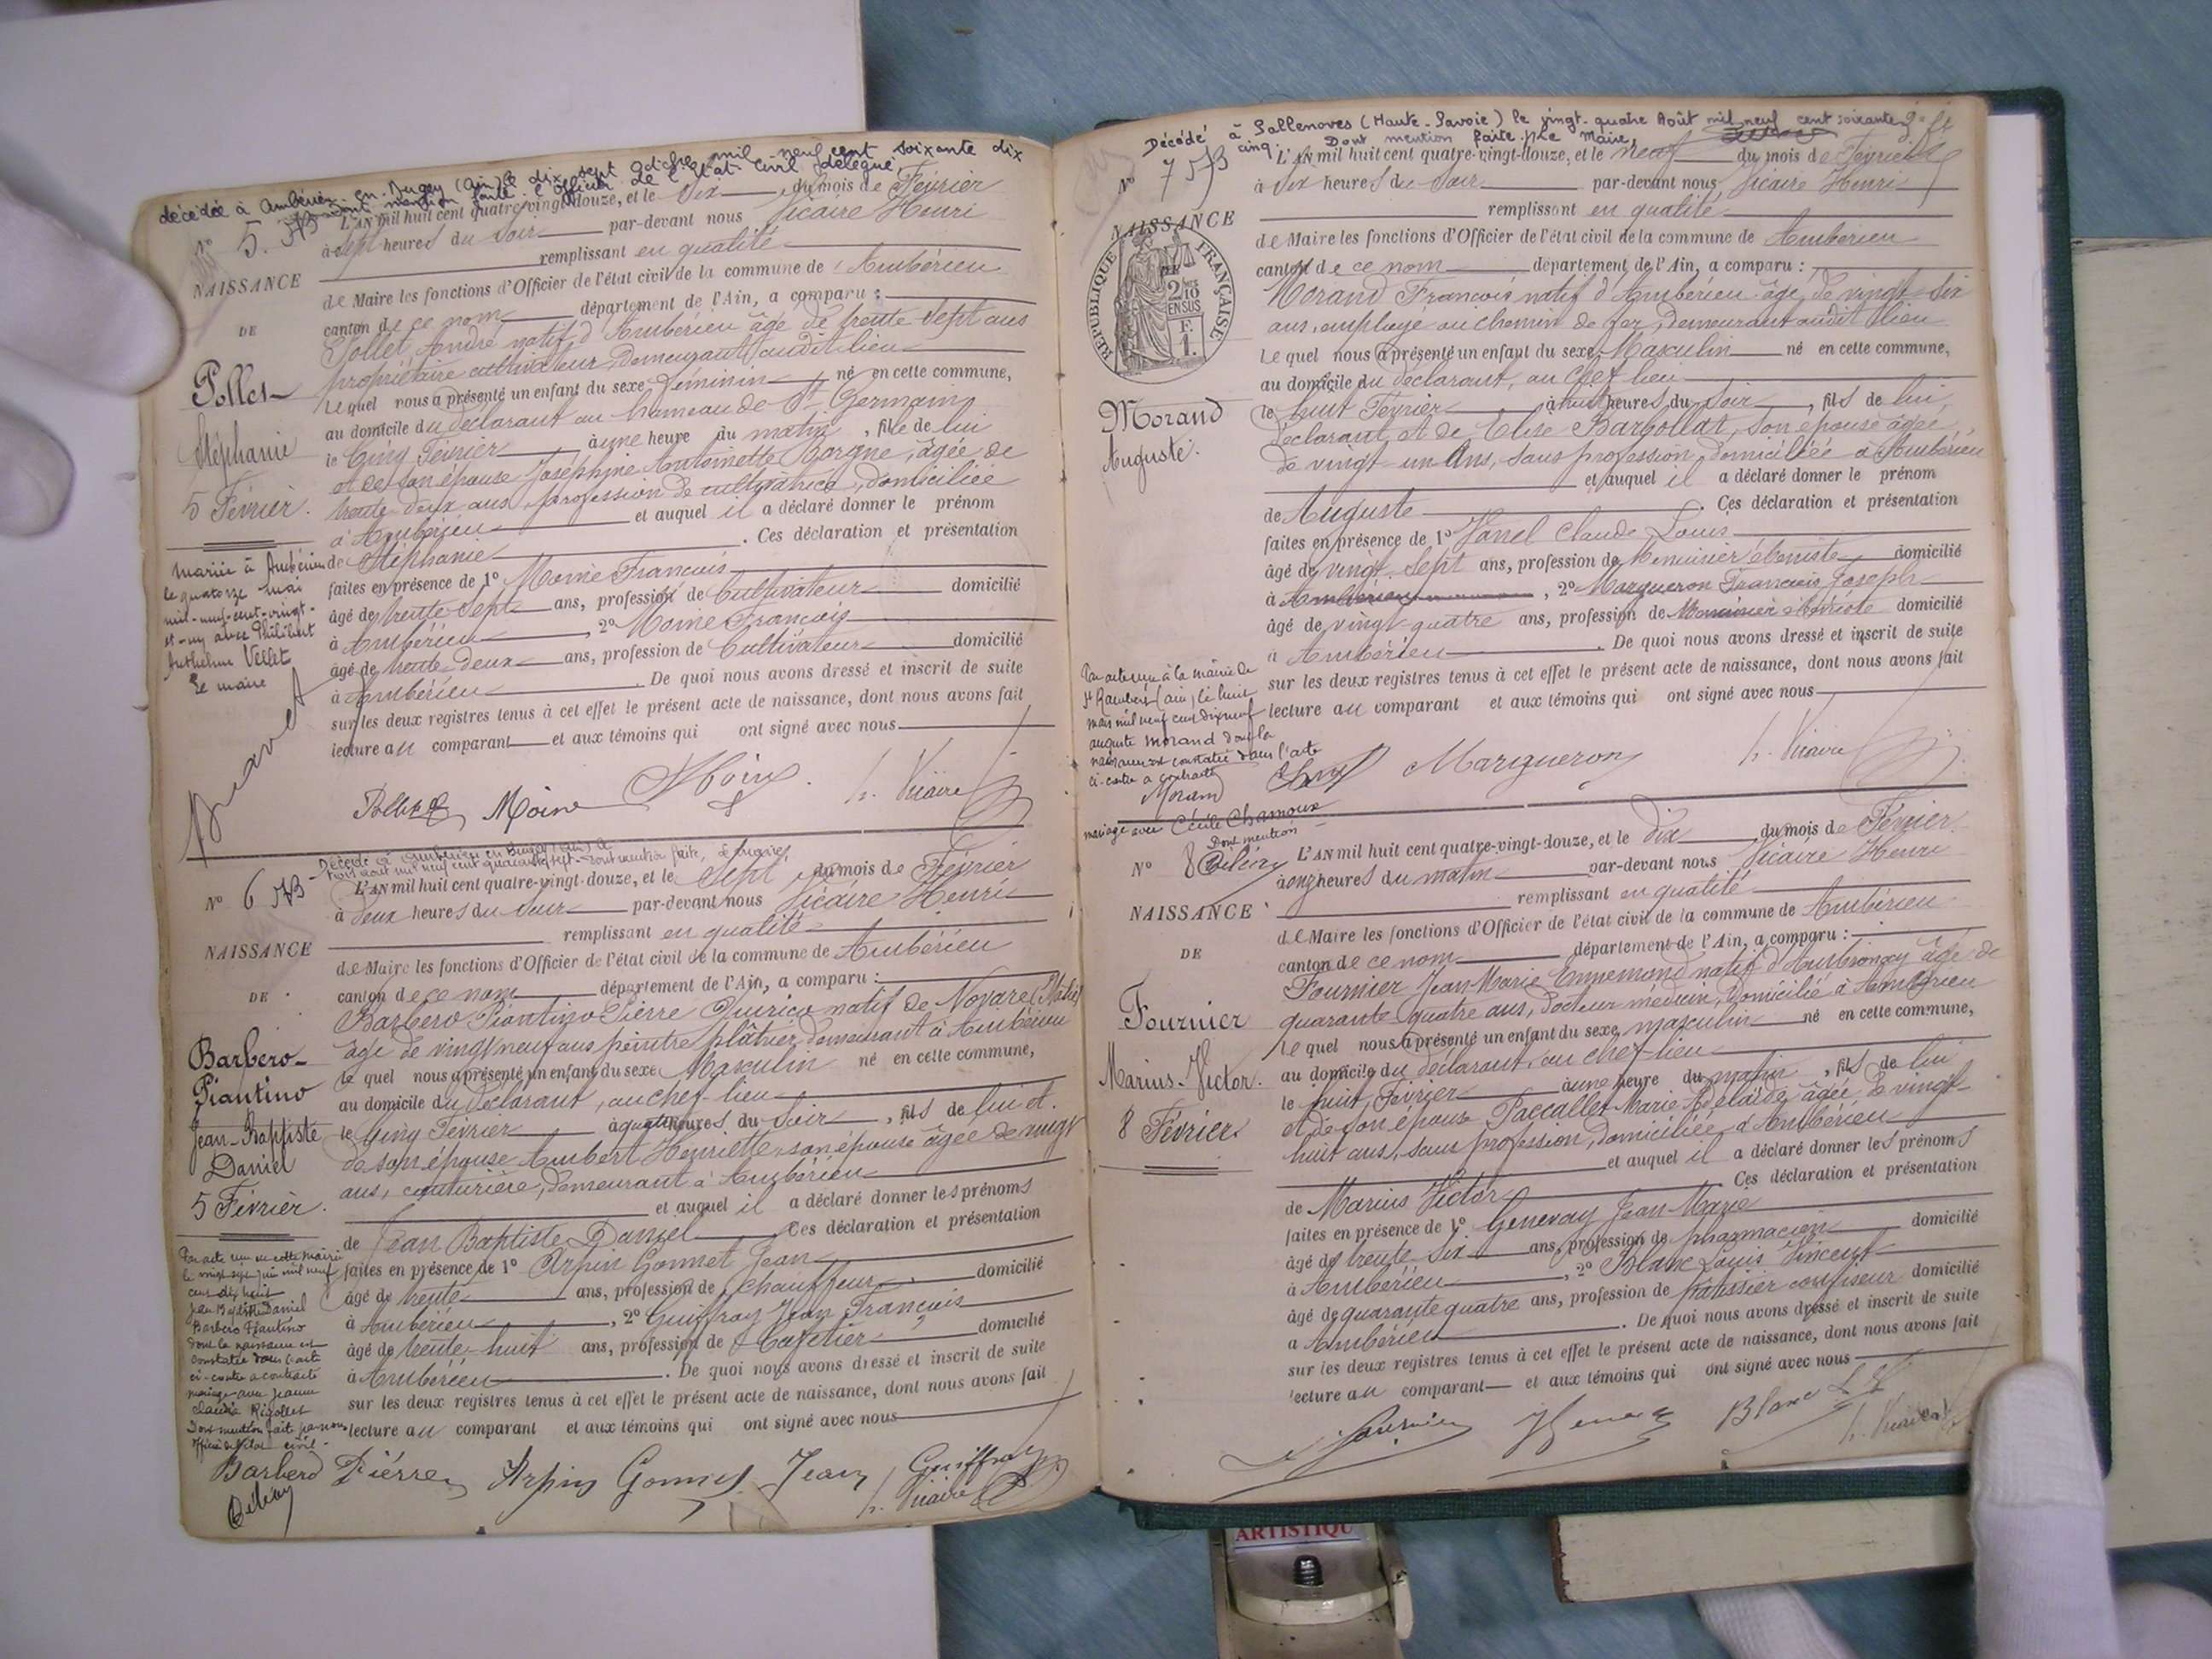 décédée à Ambérieu en Bugey (Ain) le dix sept octobre mil neuf cent soixante dix
dont mention faite. L'Officier de l'Etat Civil délégué
N° 5.
L'AN mil huit cent quatre-vingt-douze, et le Six du mois de Février
à Sept heures du Soir par-devant nous Vicaire Henri
remplissant en qualité
NAISSANCE
de Maire les fonctions d'Officier de l'état civil de la commune de Ambérieu
canton de ce nom département de l'Ain, a comparu :
DE
Pollet André natif d'Ambérieu âgé de trente Sept ans
propriétaire cultivateur, Demeurant audit lieu
Pollet
Le quel nous a présenté un enfant du sexe Féminin né en cette commune,
au domicile du déclarant au hameau de St Germain
Stéphanie
le Cinq Février à une heure du matin, fille de lui
et de son épouse Joséphine Antoinette âgée de
5 Février.
trente deux ans, profession de cultivatrice, domiciliée
à Ambérieu et auquel il a déclaré donner le prénom
de Stéphanie. Ces déclaration et présentation
faites en présence de 1° Moine François
âgé de trente Sept ans, profession de Cultivateur domicilié
à Ambérieu, 2° Moine François
âgé de trente-deux ans, profession de Cultivateur domicilié
à Ambérieu. De quoi nous avons dressé et inscrit de suite
sur les deux registres tenus à cet effet le présent acte de naissance, dont nous avons fait
lecture au comparant et aux témoins qui ont signé avec nous
Mariée à Ambérieu
le quatorze mai
mil-neuf-cent-vingt-
et-un avec Philibert
Anthelme Vellet
Le maire
Pollet Moine Moine h. Vicaire
Décédé à Ambérieu en Bugey (Ain) le
trois août mil neuf cent quarante sept. Dont mention faite,
N° 6
L'AN mil huit cent quatre-vingt-douze, et le Sept du mois de Février
à deux heures du Soir par-devant nous Vicaire Henri
remplissant en qualité
NAISSANCE
de Maire les fonctions d'Officier de l'état civil de la commune de Ambérieu
DE
canton de ce nom département de l'Ain, a comparu :
Barbero Piantino Pierre Quirico natif de Novare (Italie)
âgé de vingt neuf ans peintre plâtrier, demeurant à Ambérieu
Barbero-
Piantino
Le quel nous a présenté un enfant du sexe Masculin né en cette commune,
au domicile du déclarant, au chef-lieu
Jean-Baptiste
Daniel
le Cinq Février à quatre heures du Soir, fils de lui et
de son épouse Ambert Henriette son épouse âgée de vingt
ans, couturière, demeurant à Ambérieu
5 Février.
et auquel il a déclaré donner les prénoms
de Jean Baptiste Daniel. Ces déclaration et présentation
faites en présence de 1° Arpin Gonnet Jean
âgé de trente ans, profession de chauffeur domicilié
à Ambérieu, 2° Guiffray Jean François
âgé de trente-huit ans, profession de Cafetier domicilié
à Ambérieu. De quoi nous avons dressé et inscrit de suite
sur les deux registres tenus à cet effet le présent acte de naissance, dont nous avons fait
lecture au comparant et aux témoins qui ont signé avec nous
Par acte reçu en cette mairie
le vingt sept juin mil neuf
cent dix huit
Jean Baptiste Daniel
Barbero Piantino
dont la naissance est
constatée dans l'acte
ci-contre a contracté
mariage avec Jeanne
Claudia Rigollet
Dont mention fait par nous
officier de l'état civil.
Barbero Pierre Arpin Gonnet Jean Guiffray
h. Vicaire
Décédé à Sallenoves (Haute-Savoie) le vingt-quatre Août mil neuf cent soixante
cinq. Dont mention faite. Le Maire,
N° 7
L'AN mil huit cent quatre-vingt-douze, et le neuf du mois de Février
à Six heures du Soir par-devant nous Vicaire Henri
remplissant en qualité
NAISSANCE
RÉPUBLIQUE FRANÇAISE
2/10 EN SUS
F. 1.
de Maire les fonctions d'Officier de l'état civil de la commune de Ambérieu
canton de ce nom département de l'Ain, a comparu :
Morand François natif d'Ambérieu âgé de vingt-Six
ans, employé au chemin de fer, demeurant audit lieu
Le quel nous a présenté un enfant du sexe Masculin né en cette commune,
au domicile du déclarant, au chef lieu
Morand
Auguste.
le huit Février à huit heures du Soir, fils de lui
déclarant, et de Elise Bargollat, Son épouse âgée
de vingt-un Ans, Sans profession, domiciliée à Ambérieu
et auquel il a déclaré donner le prénom
de Auguste. Ces déclaration et présentation
faites en présence de 1° Claude Louis
âgé de vingt-Sept ans, profession de Menuisier ébéniste domicilié
à Ambérieu, 2° Margueron François Joseph
âgé de vingt-quatre ans, profession de Menuisier ébéniste domicilié
à Ambérieu. De quoi nous avons dressé et inscrit de suite
sur les deux registres tenus à cet effet le présent acte de naissance, dont nous avons fait
lecture au comparant et aux témoins qui ont signé avec nous
Par acte reçu à la mairie de
St Rambert (ain) le huit
mars mil neuf cent dix neuf
auguste Morand dont la
naissance est constatée dans l'acte
ci-contre a contracté
mariage avec Cécile Chamoux
Dont mention
Morand Margueron h. Vicaire
N° 8
L'AN mil huit cent quatre-vingt-douze, et le dix du mois de Février
à onze heures du matin par-devant nous Vicaire Henri
remplissant en qualité
NAISSANCE
de Maire les fonctions d'Officier de l'état civil de la commune de Ambérieu
DE
canton de ce nom département de l'Ain, a comparu :
Fournier Jean Marie Ennemond natif d'Ambronay âgé de
quarante-quatre ans, docteur médecin, domicilié à Ambérieu
Fournier
Le quel nous a présenté un enfant du sexe masculin né en cette commune,
au domicile du déclarant, au chef-lieu
Marius-Victor.
le huit Février à une heure du matin, fils de lui
et de son épouse Paccallet Marie Adelaïde, âgée de vingt-
8 Février
huit ans, Sans profession, domiciliée à Ambérieu
et auquel il a déclaré donner les prénoms
de Marius Victor. Ces déclaration et présentation
faites en présence de 1° Genevay Jean Marie
âgé de trente Six ans, profession de pharmacien domicilié
à Ambérieu, 2° Blanc Louis Vincent
âgé de quarante quatre ans, profession de pâtissier confiseur domicilié
à Ambérieu. De quoi nous avons dressé et inscrit de suite
sur les deux registres tenus à cet effet le présent acte de naissance, dont nous avons fait
lecture au comparant et aux témoins qui ont signé avec nous
Fournier Blanc h. Vicaire
ARTISTIQU